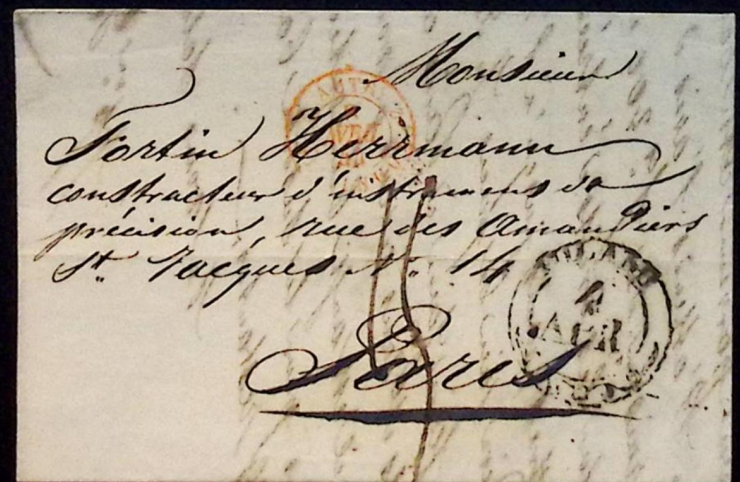 Monsieur
Fortin Herrmann
constructeur d'instrumens de
précision, rue des Amandiers
St. Jacques No. 14
Paris
MILANO
4
APR
AUT
AVRIL